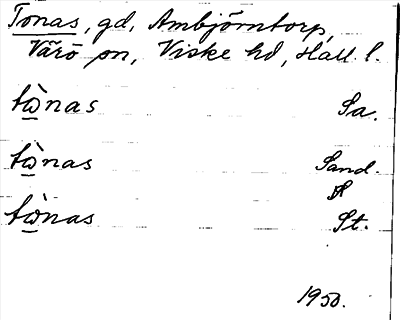 Tonas, gd, Ambjörntorp,
Värö sn, Viske hd, Hall. l.
tὼnas Sa.
tὼnas Sand.
tὼnas St.
1950.